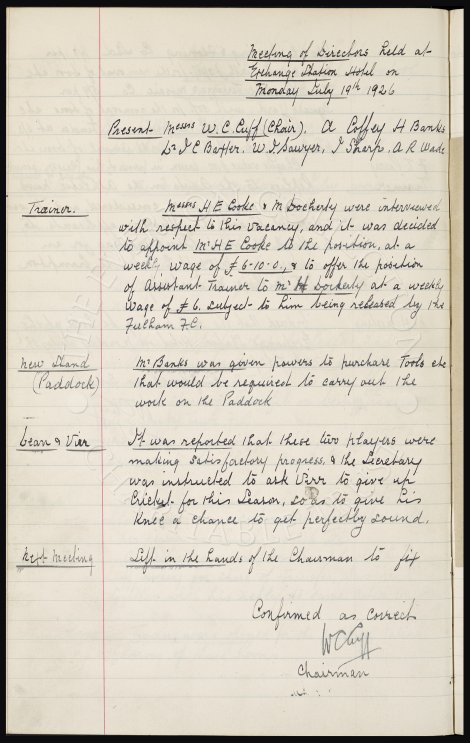 Meeting of Directors held at
Exchange Station Hotel on
Monday July 19th 1926
Present Messrs W.C. Cuff (Chair). A Coffey H Banks
Dr J C Baxter. W.J. Sawyer, J Sharp. A R Wade
Trainer. Messrs H E Cooke & M Docherty were interviewed
with respect to this vacancy, and it was decided
to appoint Mr H E Cooke to the position, at a
weekly wage of £6-10-0, & to offer the position
of Assistant Trainer to Mr M Docherty at a weekly
wage of £6. subject to him being released by the
Fulham F.C.
New Stand Mr Banks was given powers to purchase Tools etc
(Paddock) that would be required to carry out the
work on the Paddock
Dean & Virr It was reported that these two players were
making satisfactory progress, & the Secretary
was instructed to ask Virr to give up
Cricket for this Season, so as to give his
Knee a chance to get perfectly sound.
Next Meeting Left in the hands of the Chairman to fix
Confirmed as correct
WCCuff
Chairman